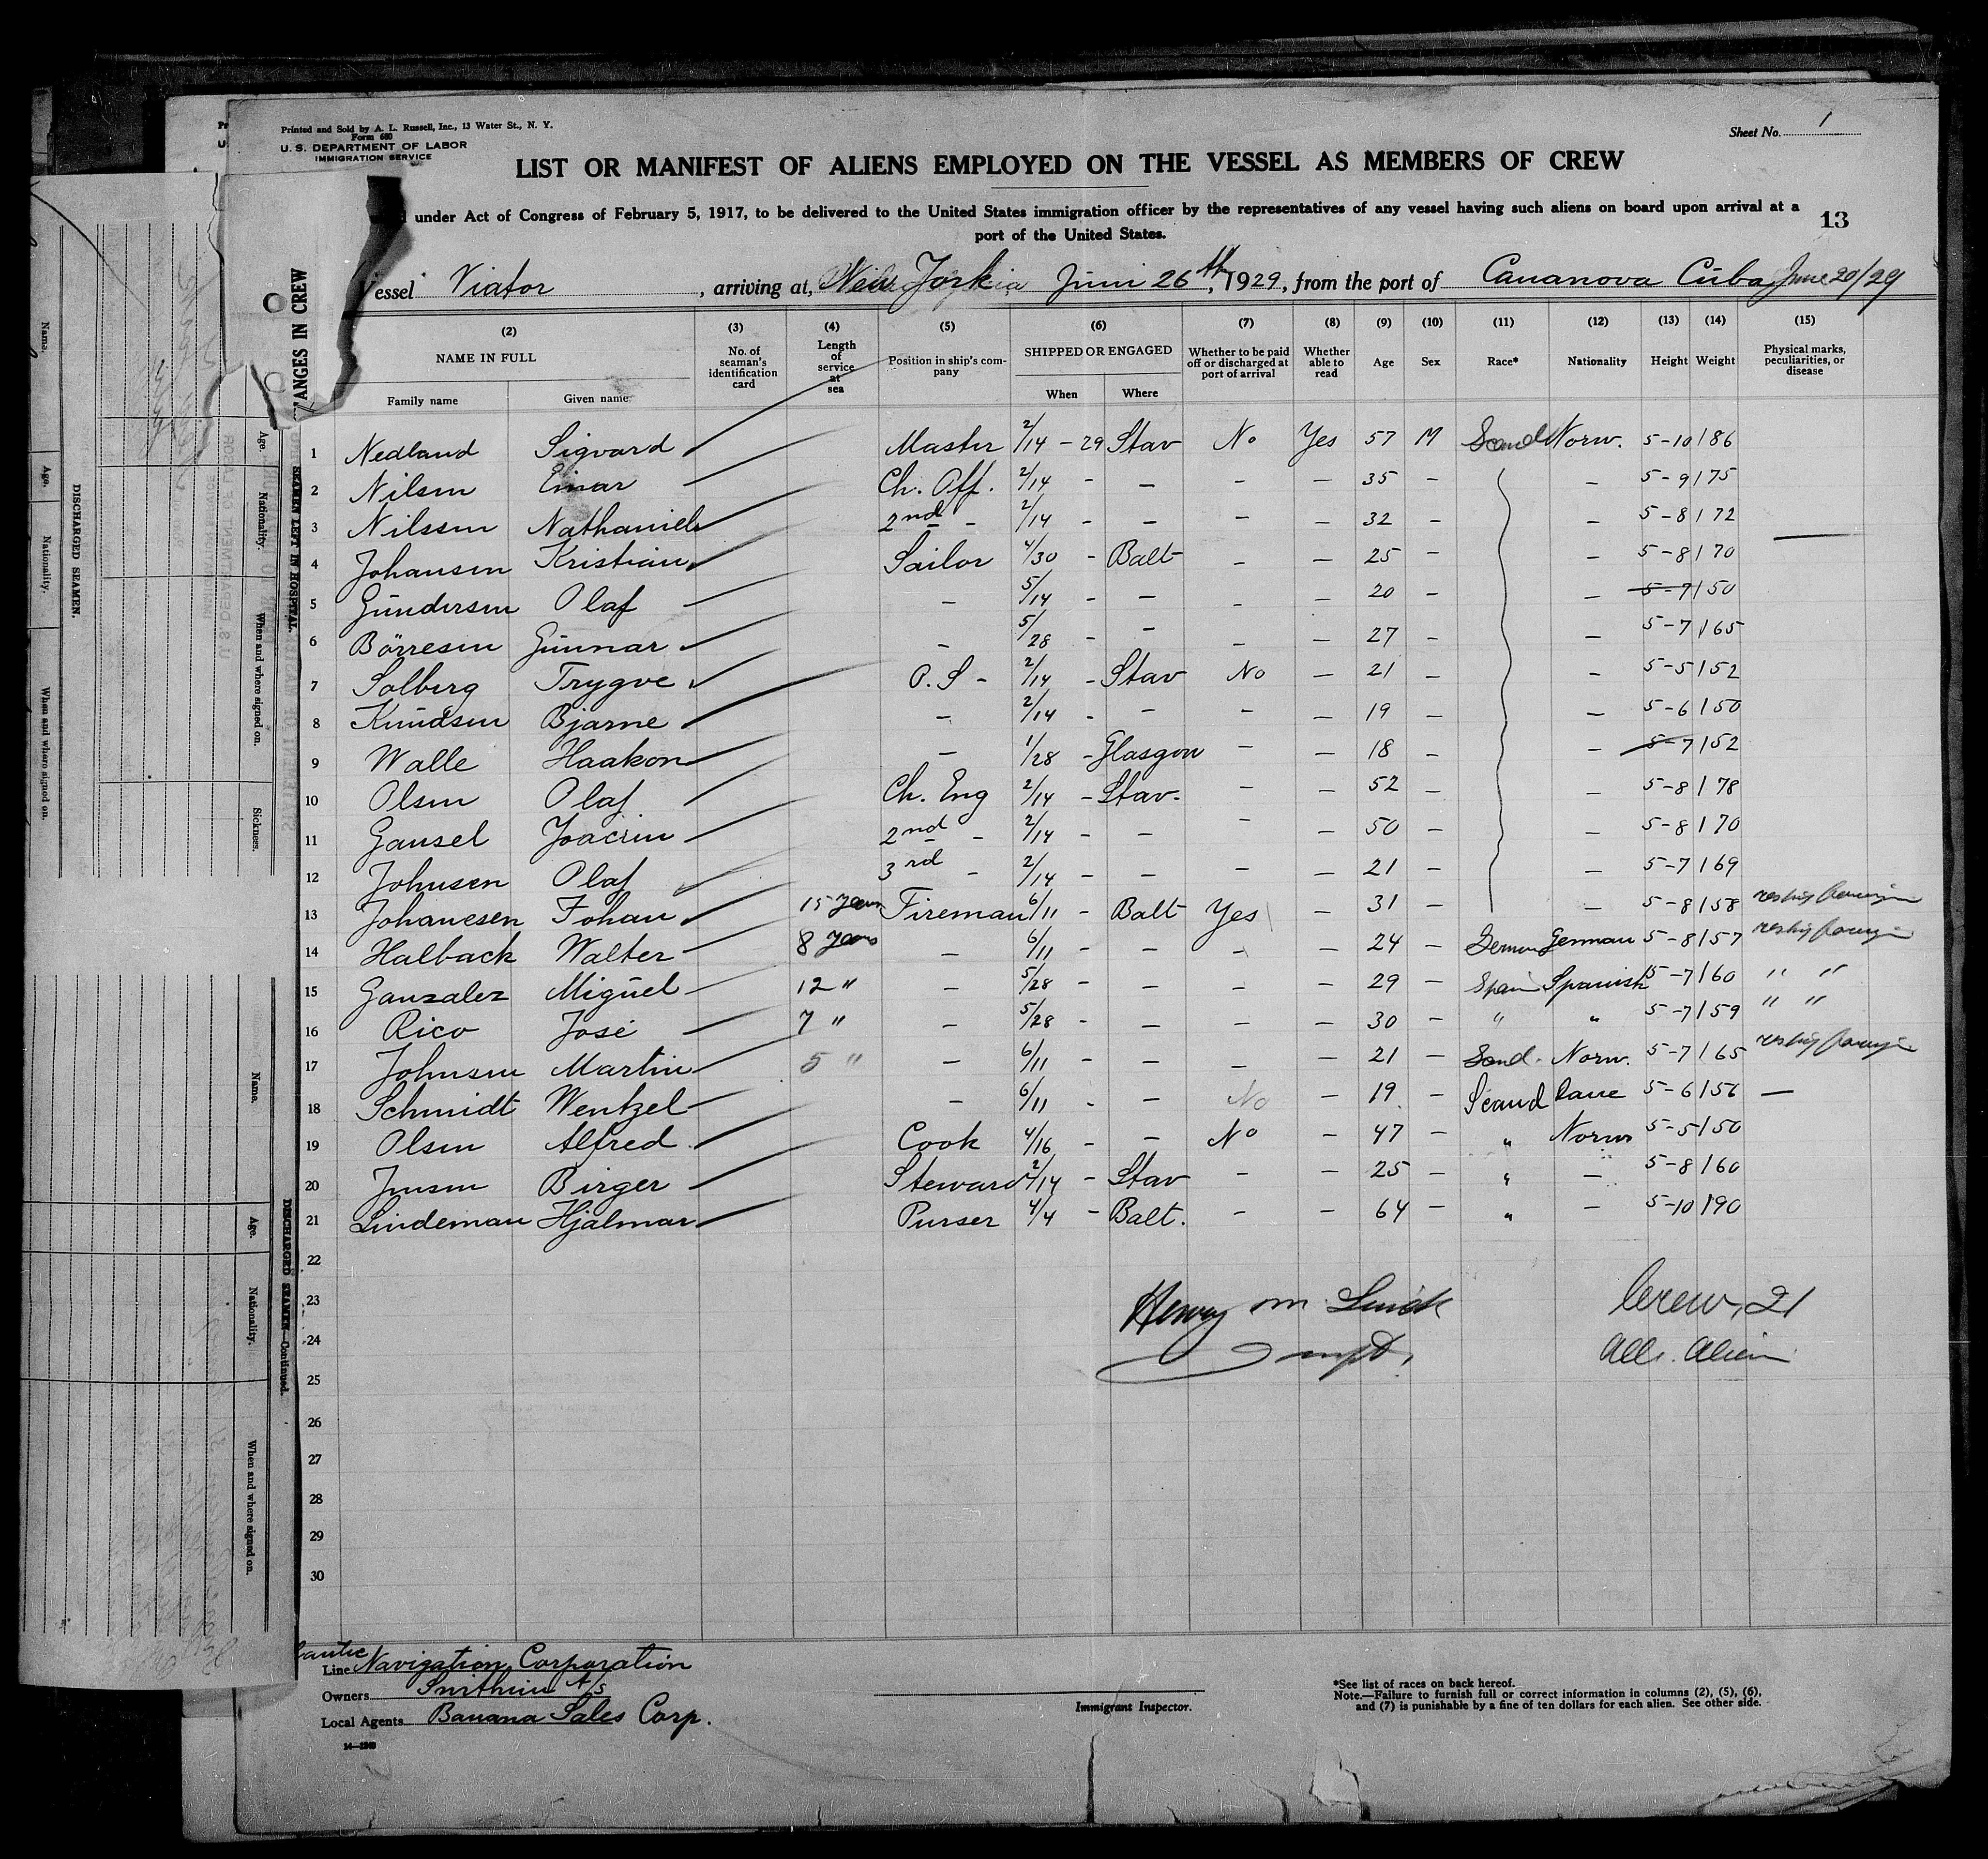 Printed and Sold by A. L. Russell, Inc., 13 Water St., N. Y.
Form 680
U. S. DEPARTMENT OF LABOR
IMMIGRATION SERVICE
Sheet No. 1
LIST OR MANIFEST OF ALIENS EMPLOYED ON THE VESSEL AS MEMBERS OF CREW
under Act of Congress of February 5, 1917, to be delivered to the United States immigration officer by the representatives of any vessel having such aliens on board upon arrival at a
port of the United States.
13
essel Viator, arriving at New York Juni 26th, 1929, from the port of Cananova Cuba June 20/29
(2) (3) (4) (5) (6) (7) (8) (9) (10) (11) (12) (13) (14) (15)
NAME IN FULL
Family name Given name
No. of seaman's identification card
Length of service at sea
Position in ship's company
SHIPPED OR ENGAGED
When Where
Whether to be paid off or discharged at port of arrival
Whether able to read
Age
Sex
Race*
Nationality
Height
Weight
Physical marks, peculiarities, or disease
1 Nedland Sigvard Master 2/14 - 29 Stav No Yes 57 M Scand Norw. 5-10 186
2 Nilsen Einar Ch. Off. 2/14 - — - — 35 - — 5-9 175
3 Nilssen Nathaniel 2nd - 2/14 - — - — 32 - — 5-8 172
4 Johansen Kristian Sailor 4/30 - Balt - — 25 - — 5-8 170
5 Gundersen Olaf — 5/14 - — - — 20 - — 5-7 150
6 Börresen Gunnar — 5/28 - — - — 27 - — 5-7 165
7 Solberg Trygve O.S - 2/14 - Stav No — 21 - — 5-5 152
8 Knudsen Bjarne — 2/14 - — - — 19 - — 5-6 150
9 Walle Haakon — 1/28 - Glasgow - — 18 - — 5-7 152
10 Olsen Olaf Ch. Eng 2/14 - Stav. - — 52 - — 5-8 178
11 Gausel Joacim 2nd - 2/14 - — - — 50 - — 5-8 170
12 Johnsen Olaf 3rd - 2/14 - — - — 21 - — 5-7 169
13 Johanesen Johan 15 years Fireman 6/11 - Balt Yes — 31 - — 5-8 158
14 Halback Walter 8 years — 6/11 - — - — 24 - German German 5-8 157
15 Ganzalez Miguel 12 " — 5/28 - — - — 29 - Spain Spanish 5-7 160 " "
16 Rico José 7 " — 5/28 - — - — 30 - " " 5-7 159 " "
17 Johnsen Martin 5 " — 6/11 - — - — 21 - Scand. Norw. 5-7 165
18 Schmidt Wentzel — 6/11 - — No — 19 - Scand Dane 5-6 156 —
19 Olsen Alfred Cook 4/16 - — No — 47 - " Norw 5-5 150
20 Jensen Birger Steward 2/14 - Stav - — 25 - " — 5-8 160
21 Lindeman Hjalmar Purser 4/4 - Balt. - — 64 - " — 5-10 190
22
23
24
25
26
27
28
29
30
Crew, 21
All. Alien
Line Navigation Corporation
Owners A/S
Local Agents Banana Sales Corp.
Immigrant Inspector.
*See list of races on back hereof.
Note.—Failure to furnish full or correct information in columns (2), (5), (6),
and (7) is punishable by a fine of ten dollars for each alien. See other side.
ANGES IN CREW
SEAMEN LEFT IN HOSPITAL.
Age.
Nationality.
When and where signed on.
Sickness.
DISCHARGED SEAMEN.
Name.
Age.
Nationality.
When and where signed on.
DISCHARGED SEAMEN—Continued.
Name.
Age.
Nationality.
When and where signed on.